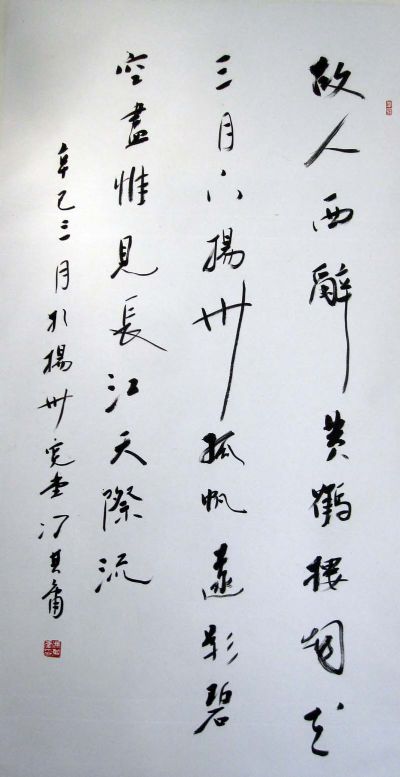 故人西辭黄鶴樓烟花
三月下揚州孤帆遠影碧
空盡惟見長江天際流
辛巳三月於揚州寬堂冯其庸